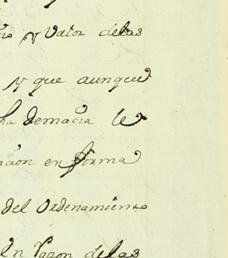 y valor delas
y que aunque
demacia le
cion en forma
del Ordenamiento
en razon delas